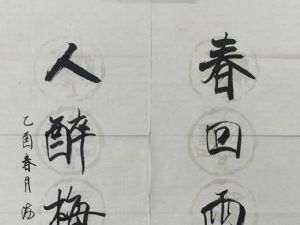 春回雨
人醉梅
乙酉春月